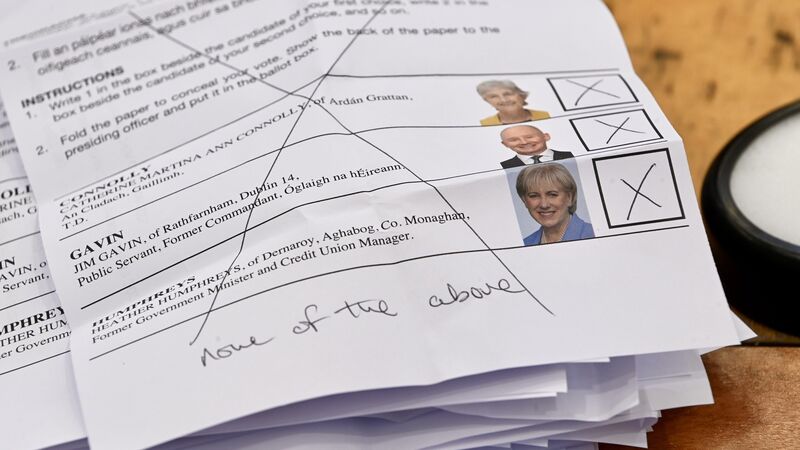 2. Fill an páipéar ionas nach
oifigeach ceannais, agus cuir sa
INSTRUCTIONS
1. Write 1 in the box beside the candidate of your first choice, write 2 in the
box beside the candidate of your second choice, and so on.
2. Fold the paper to conceal your vote. Show the back of the paper to the
presiding officer and put it in the ballot box.
CONNOLLY
CATHERINE MARTINA ANN CONNOLLY, of Ardán Grattan,
An Cladach, Gaillimh.
T.D.
GAVIN
JIM GAVIN, of Rathfarnham, Dublin 14,
Public Servant, Former Commandant, Óglaigh na hÉireann.
HUMPHREYS
HEATHER HUMPHREYS, of Dernaroy, Aghabog, Co. Monaghan,
Former Government Minister and Credit Union Manager.
none of the above
GAVIN
JIM GAVIN, of
Public Servant,
HUMPHREYS
HEATHER HUM
Former Governme